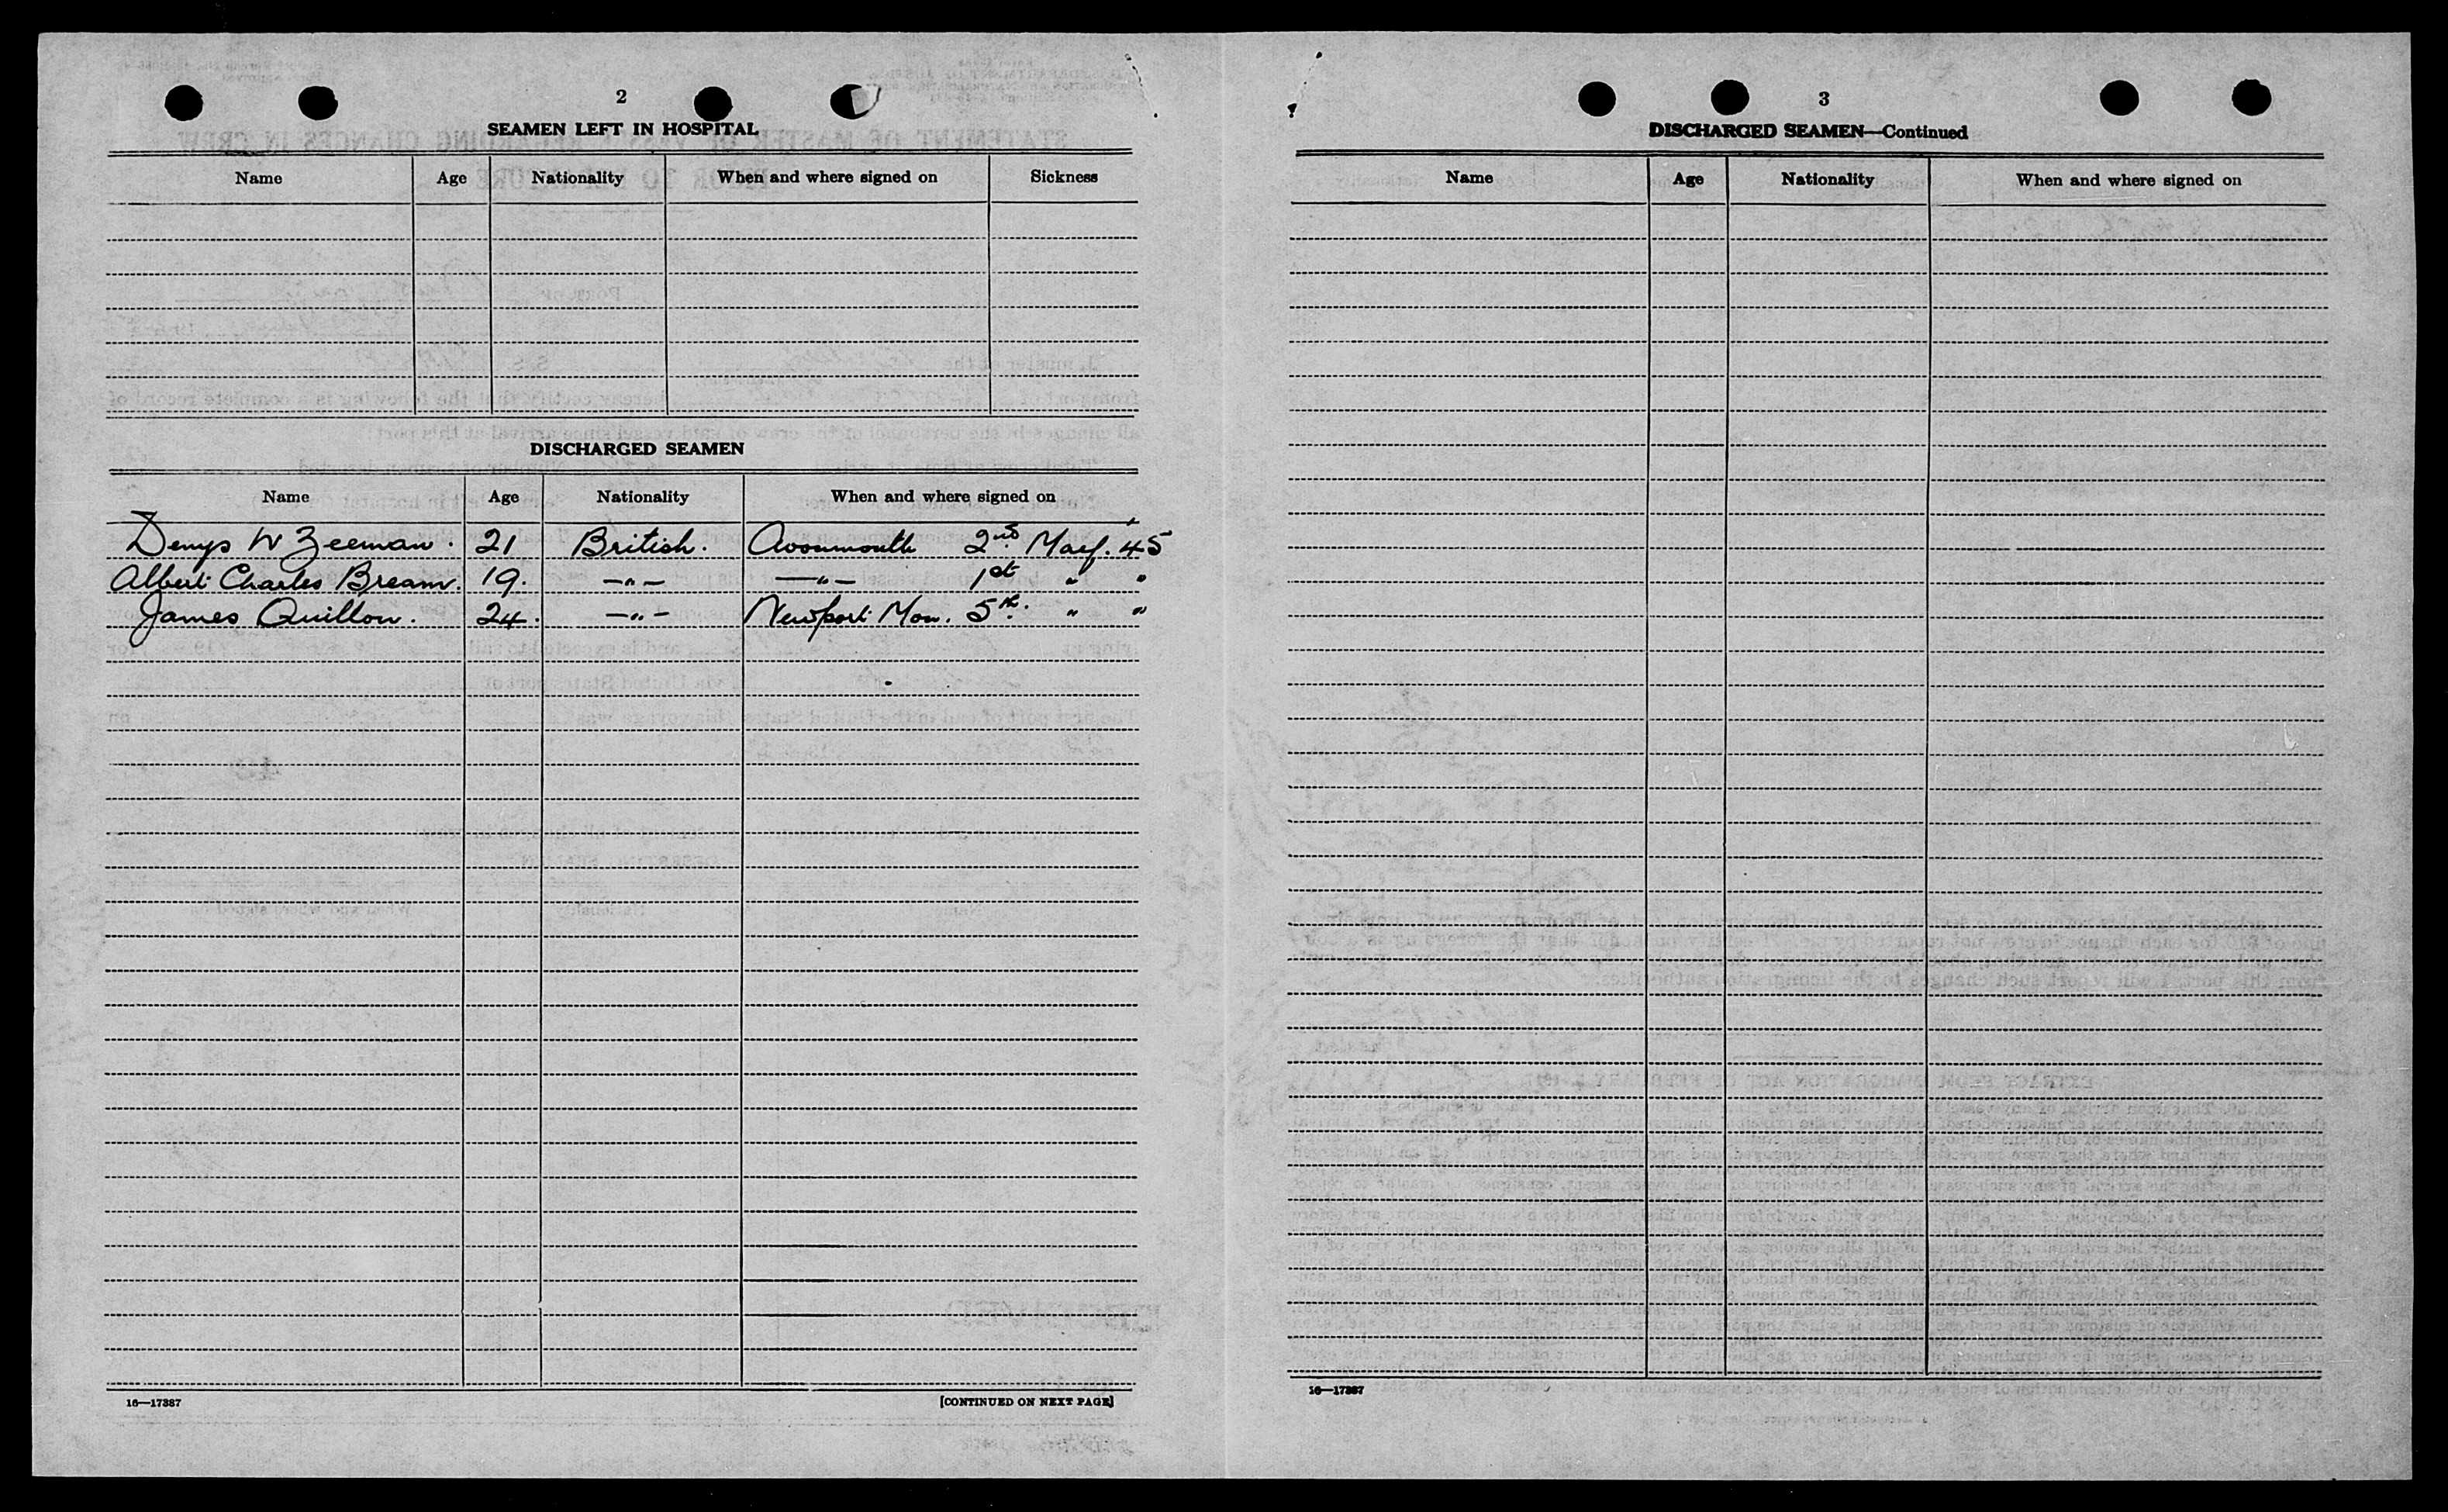 2
SEAMEN LEFT IN HOSPITAL
Name Age Nationality When and where signed on Sickness
DISCHARGED SEAMEN
Name Age Nationality When and where signed on
Denys W Zeeman. 21 British. Avonmouth 2nd May. 45
Albert Charles Bream. 19. —"— —"— 1st " "
James Quillon. 24. —"— Newport Mon. 5th. " "
16—17387 [CONTINUED ON NEXT PAGE]
3
DISCHARGED SEAMEN—Continued
Name Age Nationality When and where signed on
16—17387